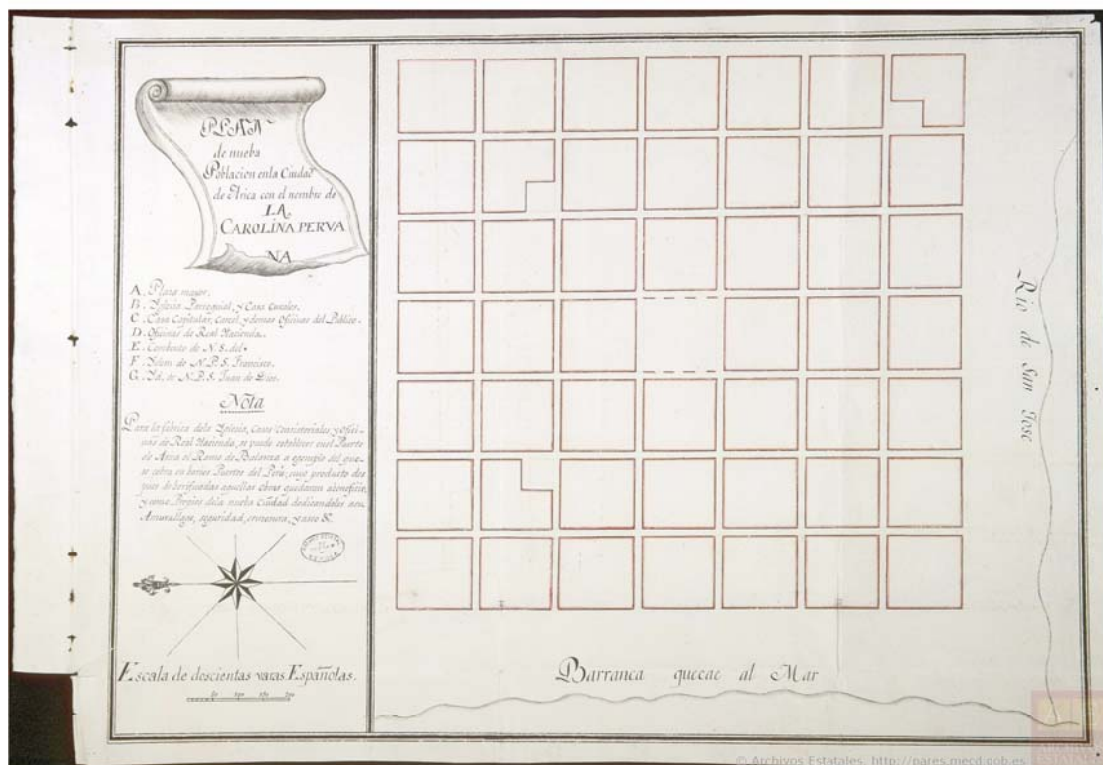 PLAN
de nueba
Poblacion enla Ciudad
de Arica con el nombre de
LA
CAROLINA PERVA
NA
A. Plaza mayor.
B. Yglesia Parroquial, y Casa Curales.
C. Casa Capitular, Carcel, y demas Oficinas del Publico.
D. Oficinas de Real Hacienda.
E. Combento de N. S. del
F. Ydem de N. P. S. Francisco.
G. Yd. de N. P. S. Juan de Dios.
Nota
Para la fabrica dela Yglesia, Casas Consistoriales, y Ofici-
nas de Real Hacienda, se puede establecer en el Puerto
de Arica el Ramo de Balanza a exemplo del que
se cobra en Puertos del Perú, cuyo producto des
pues de berificadas aquellas obras quedaran abeneficio,
y como Propios dela nueba Ciudad dedicandolos asu
seguridad, y aseo &.
Escala de doscientas varas Españolas.
50 100 150 200
Rio de San Jose
Barranca quecae al Mar
© Archivos Estatales, http://pares.mecd.gob.es